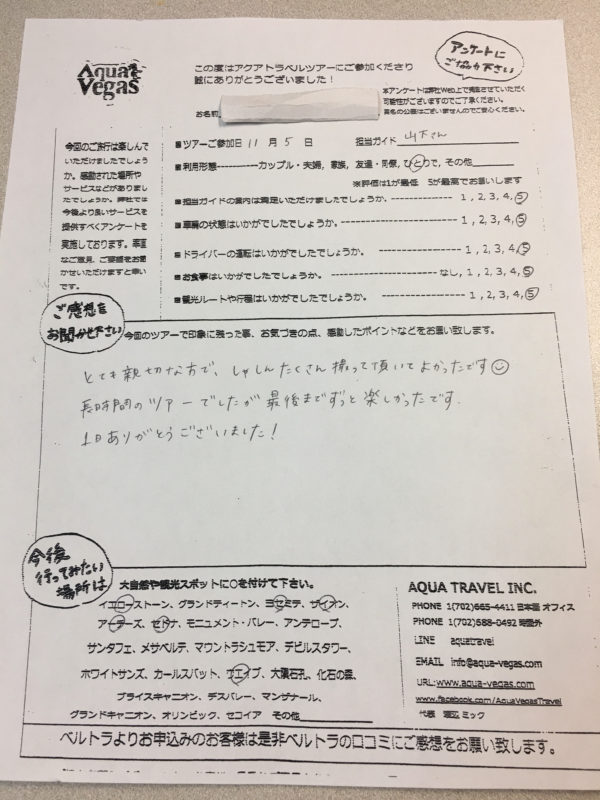 Aqua Vegas
この度はアクアトラベルツアーにご参加くださり
誠にありがとうございました！
アンケートに
ご協力下さい
本アンケートは弊社Web上で発信させていただく
可能性がございますのでご了承ください。
実名の公開はございませんのでご安心ください。
お名前
今回のご旅行は楽しんで
いただけましたでしょう
か。感動された場所や
サービスなどがありまし
たでしょうか。弊社では
今後より良いサービスを
提供すべくアンケートを
実施しております。率直
なご意見、ご要望をお聞
かせいただけますと幸い
です。
■ツアーご参加日 11 月 5 日 担当ガイド 山下さん
■利用形態-----------カップル・夫婦, 家族, 友達・同僚, ひとりで, その他
※評価は1が最低 5が最高でお願いします
■担当ガイドの案内は満足いただけましたでしょうか。---------------- 1, 2, 3, 4, 5
■車輛の状態はいかがでしたでしょうか。---------------- 1, 2, 3, 4, 5
■ドライバーの運転はいかがでしたでしょうか。---------------- 1, 2, 3, 4, 5
■お食事はいかがでしたでしょうか。---------------- なし, 1, 2, 3, 4, 5
■観光ルートや行程はいかがでしたでしょうか。---------------- 1, 2, 3, 4, 5
ご感想を
お聞かせ下さい
今回のツアーで印象に残った事、お気づきの点、感動したポイントなどをお願い致します。
とても親切な方で、しゃしんたくさん撮って頂いてよかったです
長時間のツアーでしたが最後までずっと楽しかったです.
1日ありがとうございました！
今後
行ってみたい
場所は
大自然や観光スポットに○を付けて下さい。
イエローストーン、グランドティートン、ヨセミテ、ザイオン、
アーチーズ、セドナ、モニュメント・バレー、アンテロープ、
サンタフェ、メサベルデ、マウントラシュモア、デビルスタワー、
ホワイトサンズ、カールスバット、ウエイブ、大隕石孔、化石の森、
ブライスキャニオン、デスバレー、マンザナール、
グランドキャニオン、オリンピック、セコイア その他
AQUA TRAVEL INC.
PHONE 1(702)665-4411 日本語 オフィス
PHONE 1(702)688-0492 時間外
LINE aquatravel
EMAIL info@aqua-vegas.com
URL:www.aqua-vegas.com
www.facebook.com/AquaVegasTravel
代表 渡辺 ミック
ベルトラよりお申込みのお客様は是非ベルトラの口コミにご感想をお願い致します。